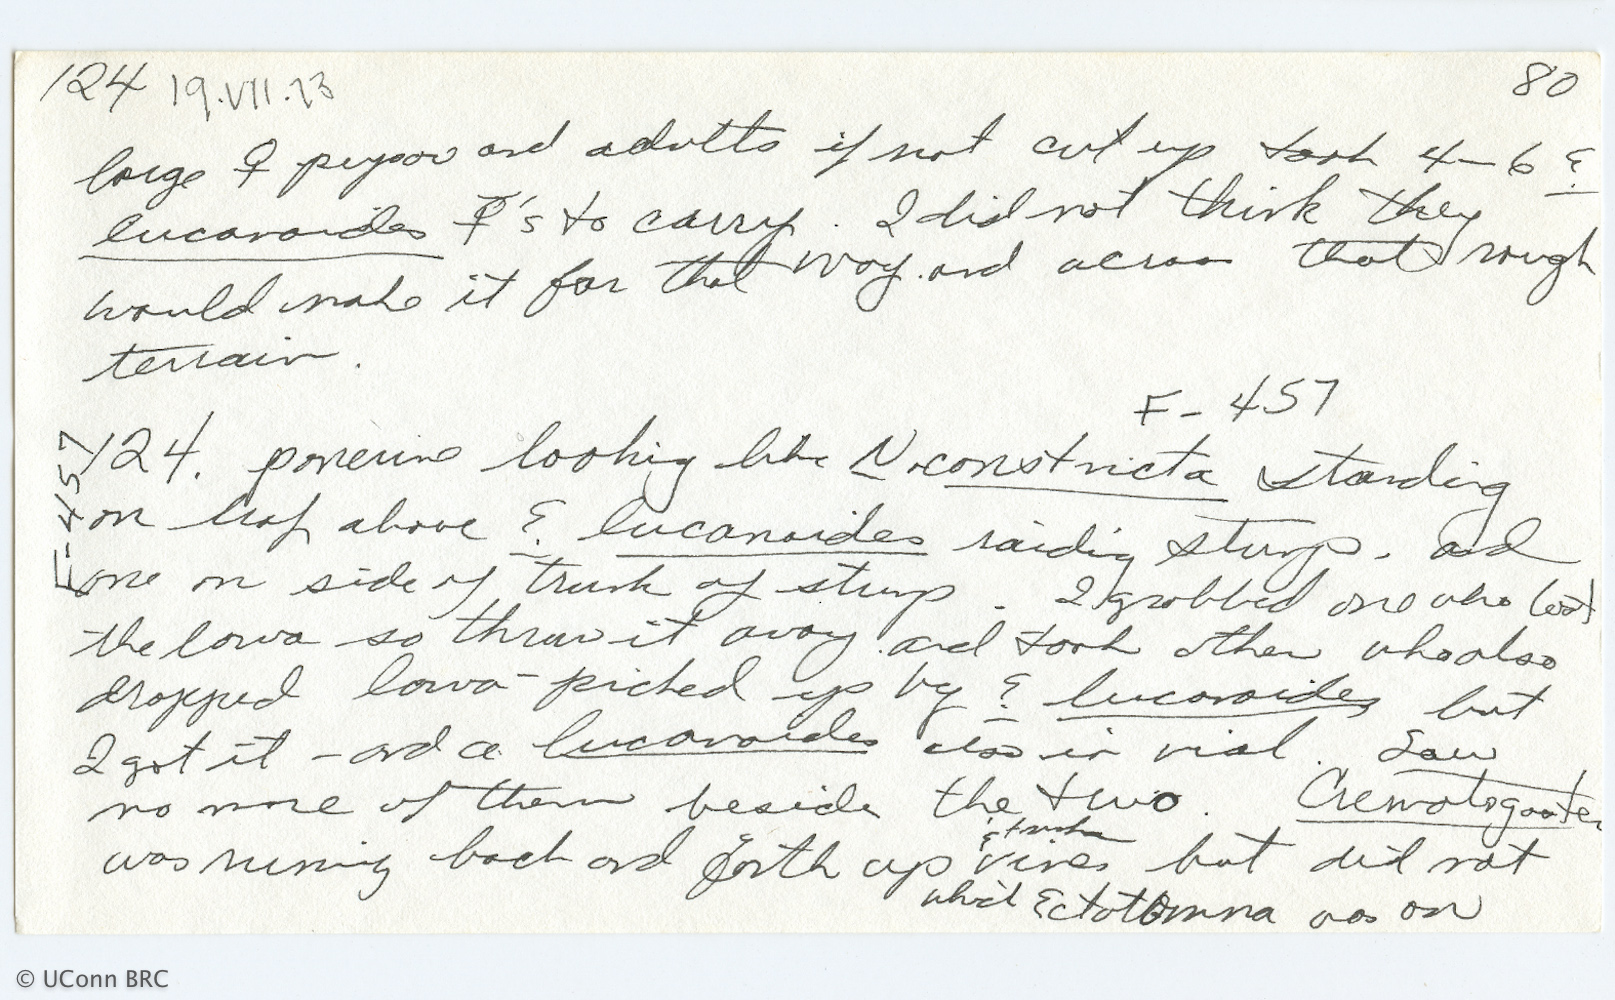 124 19.VII.73 80
large ♀ pupae and adults if not cut up took 4-6 E.
lucanoides ☿'s to carry. I did not think they
would make it far that way and across that rough
terrain.
F-457
F-457
124. ponerine looking like N. constricta standing
on leaf above E. lucanoides raiding stump. and
one on side of trunk of stump. I grabbed one who lost
the larva so threw it away and took other who also
dropped larva - picked up by E. lucanoides but
I got it - and a lucanoides also in vial. Saw
no more of them beside the two. Crematogaster
was running back and forth up vines but did not
which Ectatomma was on